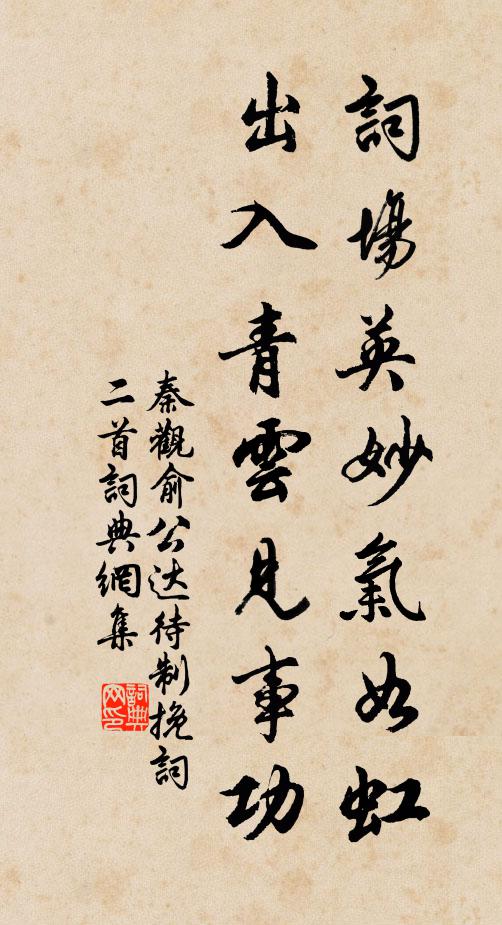 詞場英妙氣如虹
出入青雲見事功
秦觀俞公达待制挽詞
二首詞典網集
詞典
网印